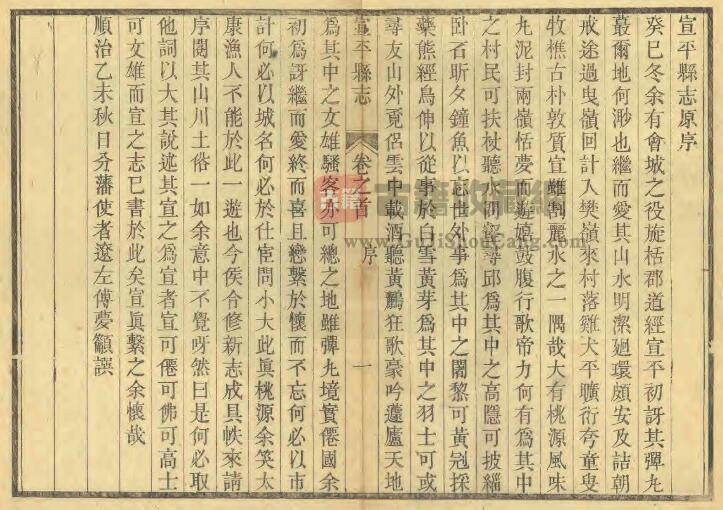 宣平縣志原序
癸巳冬余有會城之役旋栝郡道經宣平初訝其彈丸
蕞爾地何渺也繼而愛其山水明潔廻環頗安及詰朝
戒途過曳嶺回計入樊嶺來村落雞犬平曠衍夸童叟
牧樵古朴敦質宣雖割麗水之一隅哉大有桃源風味
丸泥封兩嶺恬夢而遊嬉鼓腹行歌帝力何有為其中
之村民可扶杖聽水澗壑尋邱為其中之高隱可披緇
卧石昕夕鐘魚以忘世外事為其中之闍黎可黃冠採
藥熊經鳥伸以從事於白雪黃芽為其中之羽士可或
尋友山外覔侶雲中載酒聽黃鸝狂歌豪吟蘧廬天地
宣平縣志 卷之首 序 一
為其中之文雄騷客亦可總之地雖彈丸境實僊國余
初為訝繼而愛終而喜且戀繫於懷而不忘何必以市
計何必以城名何必於仕宦問小大此眞桃源余笑太
康漁人不能於此一遊也今侯合修新志成具帙來請
序閱其山川土俗一如余意中不覺呀然曰是何必取
他詞以大其說述其宣之為宣者宣可僊可佛可高士
可文雄而宣之志已書於此矣宣眞繫之余懷哉
順治乙未秋日分藩使者遼左傅夢籲譔
古籍收藏網
www.GuJiShouCang.com